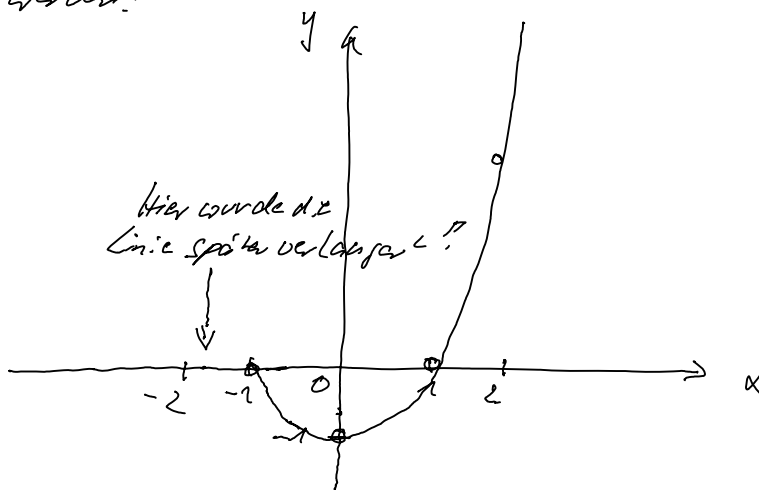 y
Hier wurde die
Linie später verlängert?
-2 -1 0 1 2
x
-1